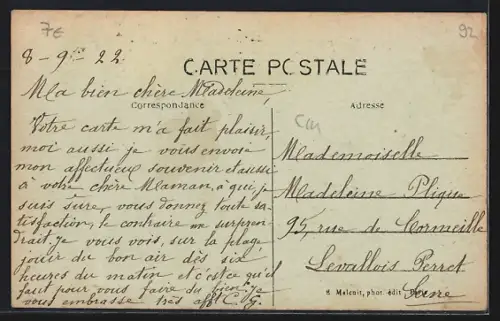 7€
92
8-9-22
CARTE POSTALE
Ma bien chère Madeleine,
Correspondance
Adresse
Votre carte m'a fait plaisir,
moi aussi je vous envoie
mon affectueux souvenir et aussi
à votre chère Maman, à qui, je
suis sûre, vous donnez toute sa-
tisfaction, le contraire me surpren-
drait. Je vous vois, sur la plage
jouir du bon air dès six
heures du matin et c'est ce qu'il
faut pour vous faire du bien. Je
vous embrasse très afft C. G.
Mademoiselle
Madeleine Plique
95, rue de Cormeille
Levallois Perret
Seine
H. Malenit, phot. édit.